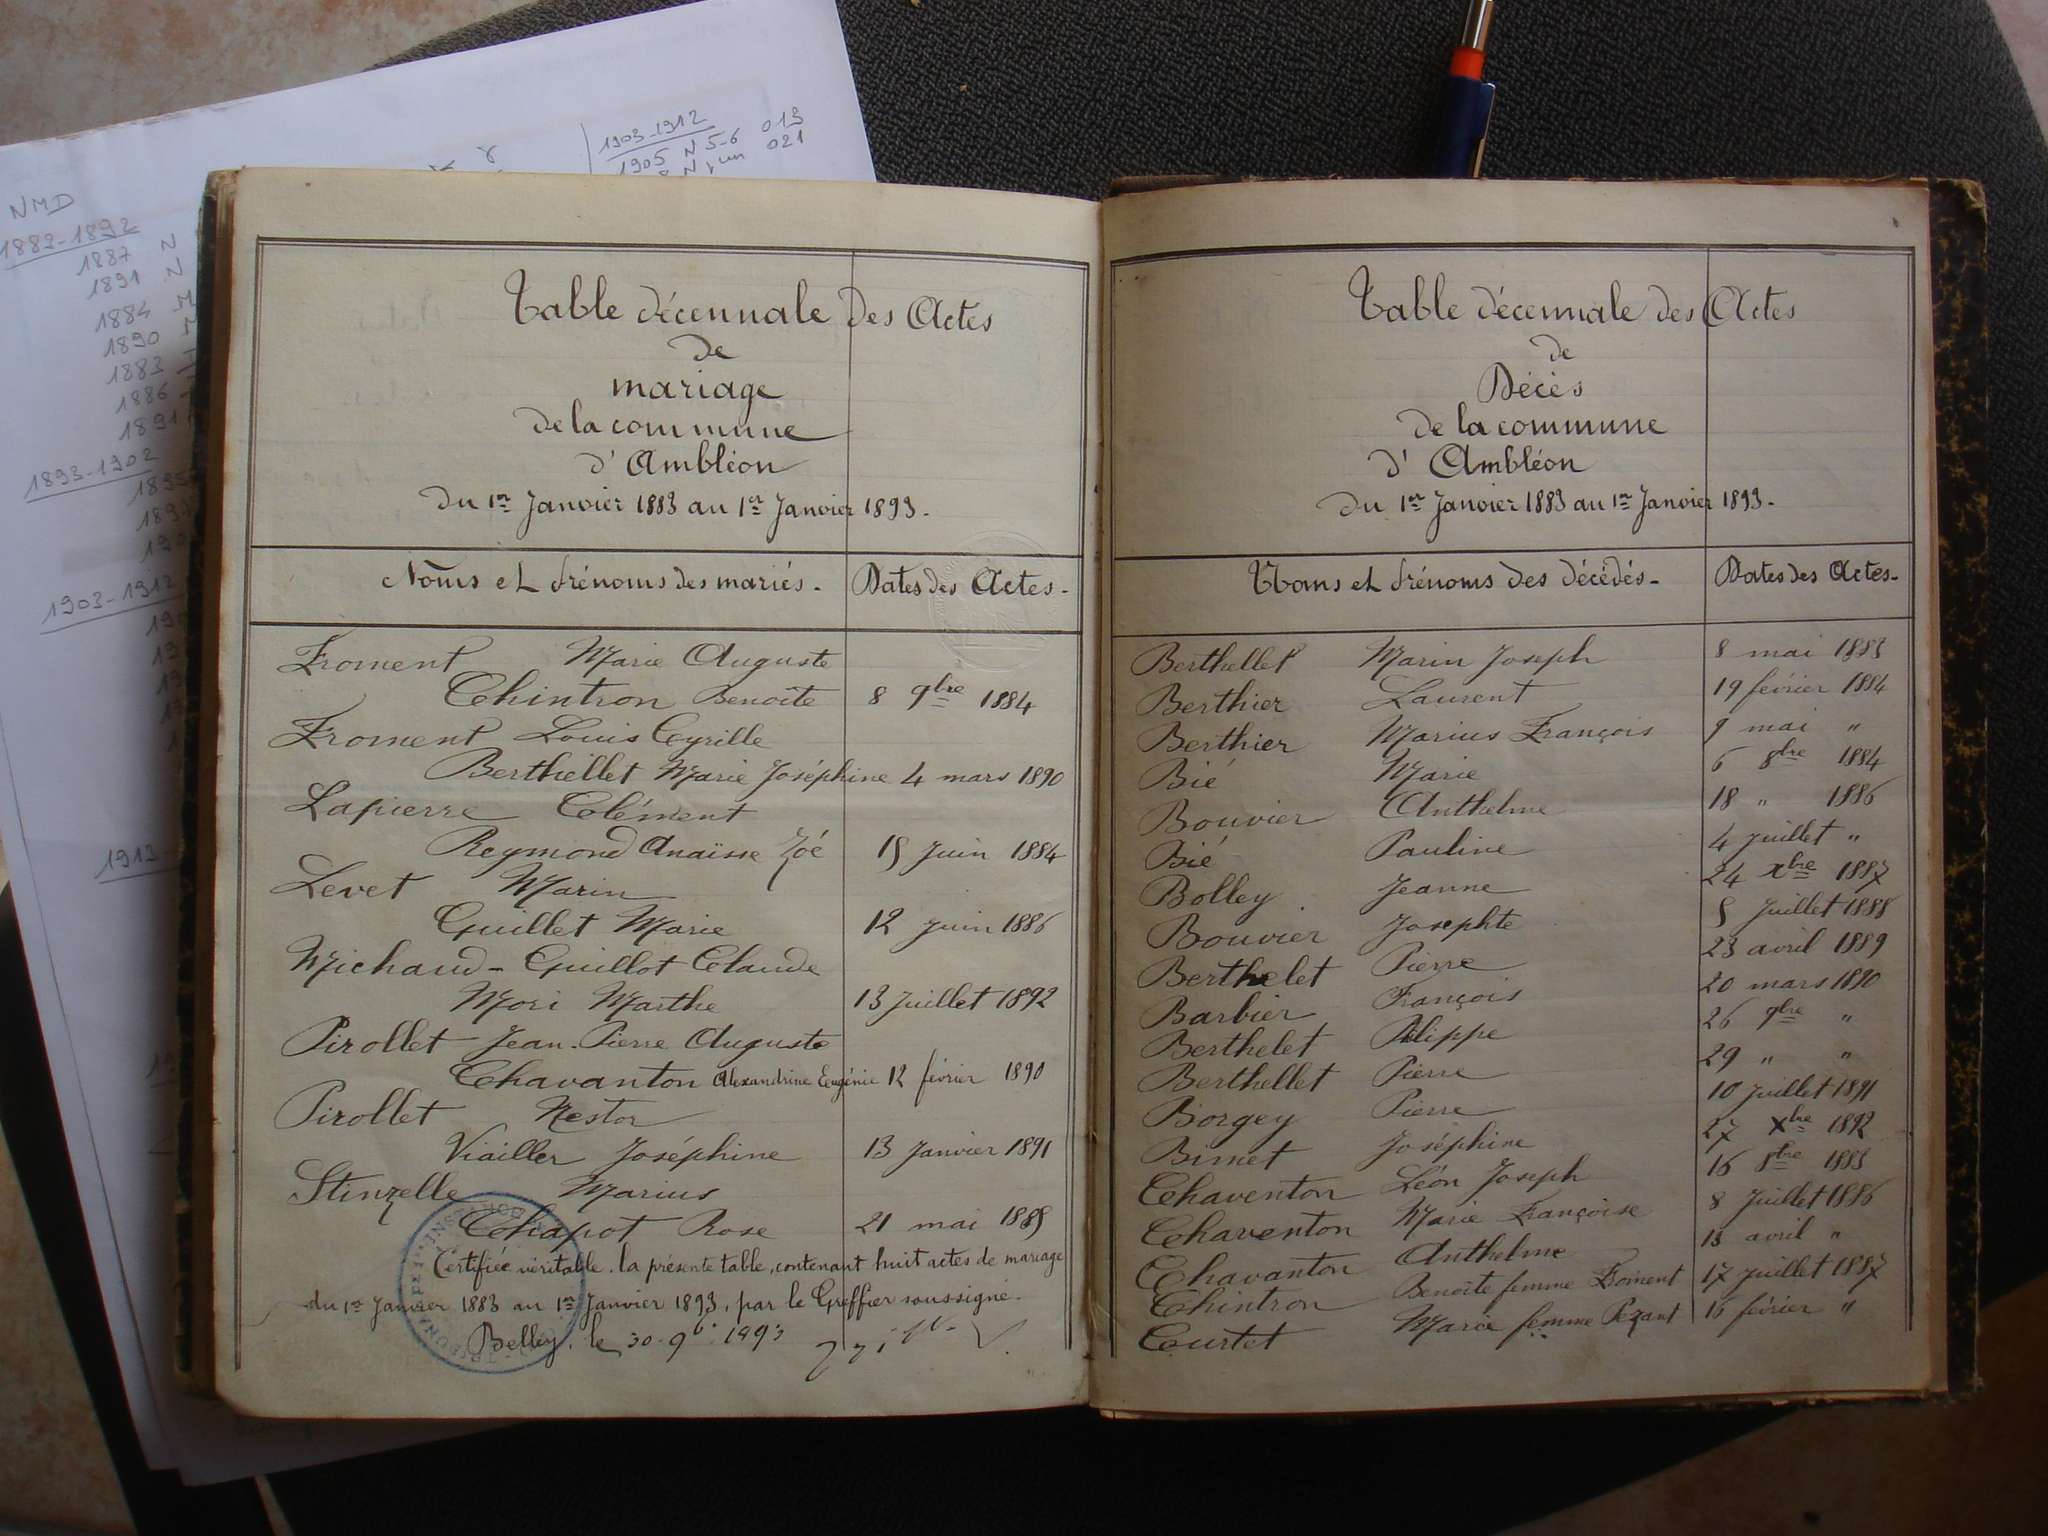 NMD
1883-1892
1887 N
1891 N
1884 M
1890 M
1883
1886
1891
1893-1902
1903-1912
1903-1912
1905 N 5-6 013
021
Table décennale des Actes
de
mariage
de la commune
d'Ambléon
du 1er Janvier 1883 au 1er Janvier 1893.
Noms et Prénoms des mariés. Dates des Actes.
Froment Marie Auguste
Chintron Benoîte 8 9bre 1884
Froment Louis Cyrille
Berthellet Marie Joséphine 4 mars 1890
Lapierre Clément
Reymond Anaïsse Zoé 15 Juin 1884
Levet Marin
Guillet Marie 12 Juin 1886
Michaud-Guillot Claude
Mori Marthe 13 Juillet 1892
Pirollet Jean-Pierre Auguste
Chavanton Alexandrine Eugénie 12 février 1890
Pirollet Nestor
Viailler Joséphine 13 Janvier 1891
Stinzelle Marius
Chapot Rose 21 mai 1885
Certifiée véritable. la présente table, contenant huit actes de mariage
du 1er Janvier 1883 au 1er Janvier 1893, par le Greffier soussigné.
Belley, le 30 9b. 1893
Table décennale des Actes
de
Décès
de la commune
d'Ambléon
du 1er Janvier 1883 au 1er Janvier 1893.
Noms et Prénoms des décédés. Dates des Actes.
Berthellet Marin Joseph 8 mai 1883
Berthier Laurent 19 février 1884
Berthier Marius François 9 mai "
Bié Marie 6 8bre 1884
Bouvier Anthelme 18 " 1886
Bié Pauline 4 Juillet "
Bolley Jeanne 24 xbre 1887
Bouvier Josephte 5 Juillet 1888
Berthelet Pierre 23 avril 1889
Barbier François 20 mars 1890
Berthelet Philippe 26 9bre "
Berthellet Pierre 29 " "
Borgey Pierre 10 Juillet 1891
Binet Joséphine 27 Xbre 1892
Chaventon Léon Joseph 16 8bre 1883
Chaventon Marie Françoise 8 Juillet 1886
Chavanton Anthelme 13 avril "
Chintron Benoîte femme Froment 17 Juillet 1887
Courtet Marie femme Pezant 16 février "